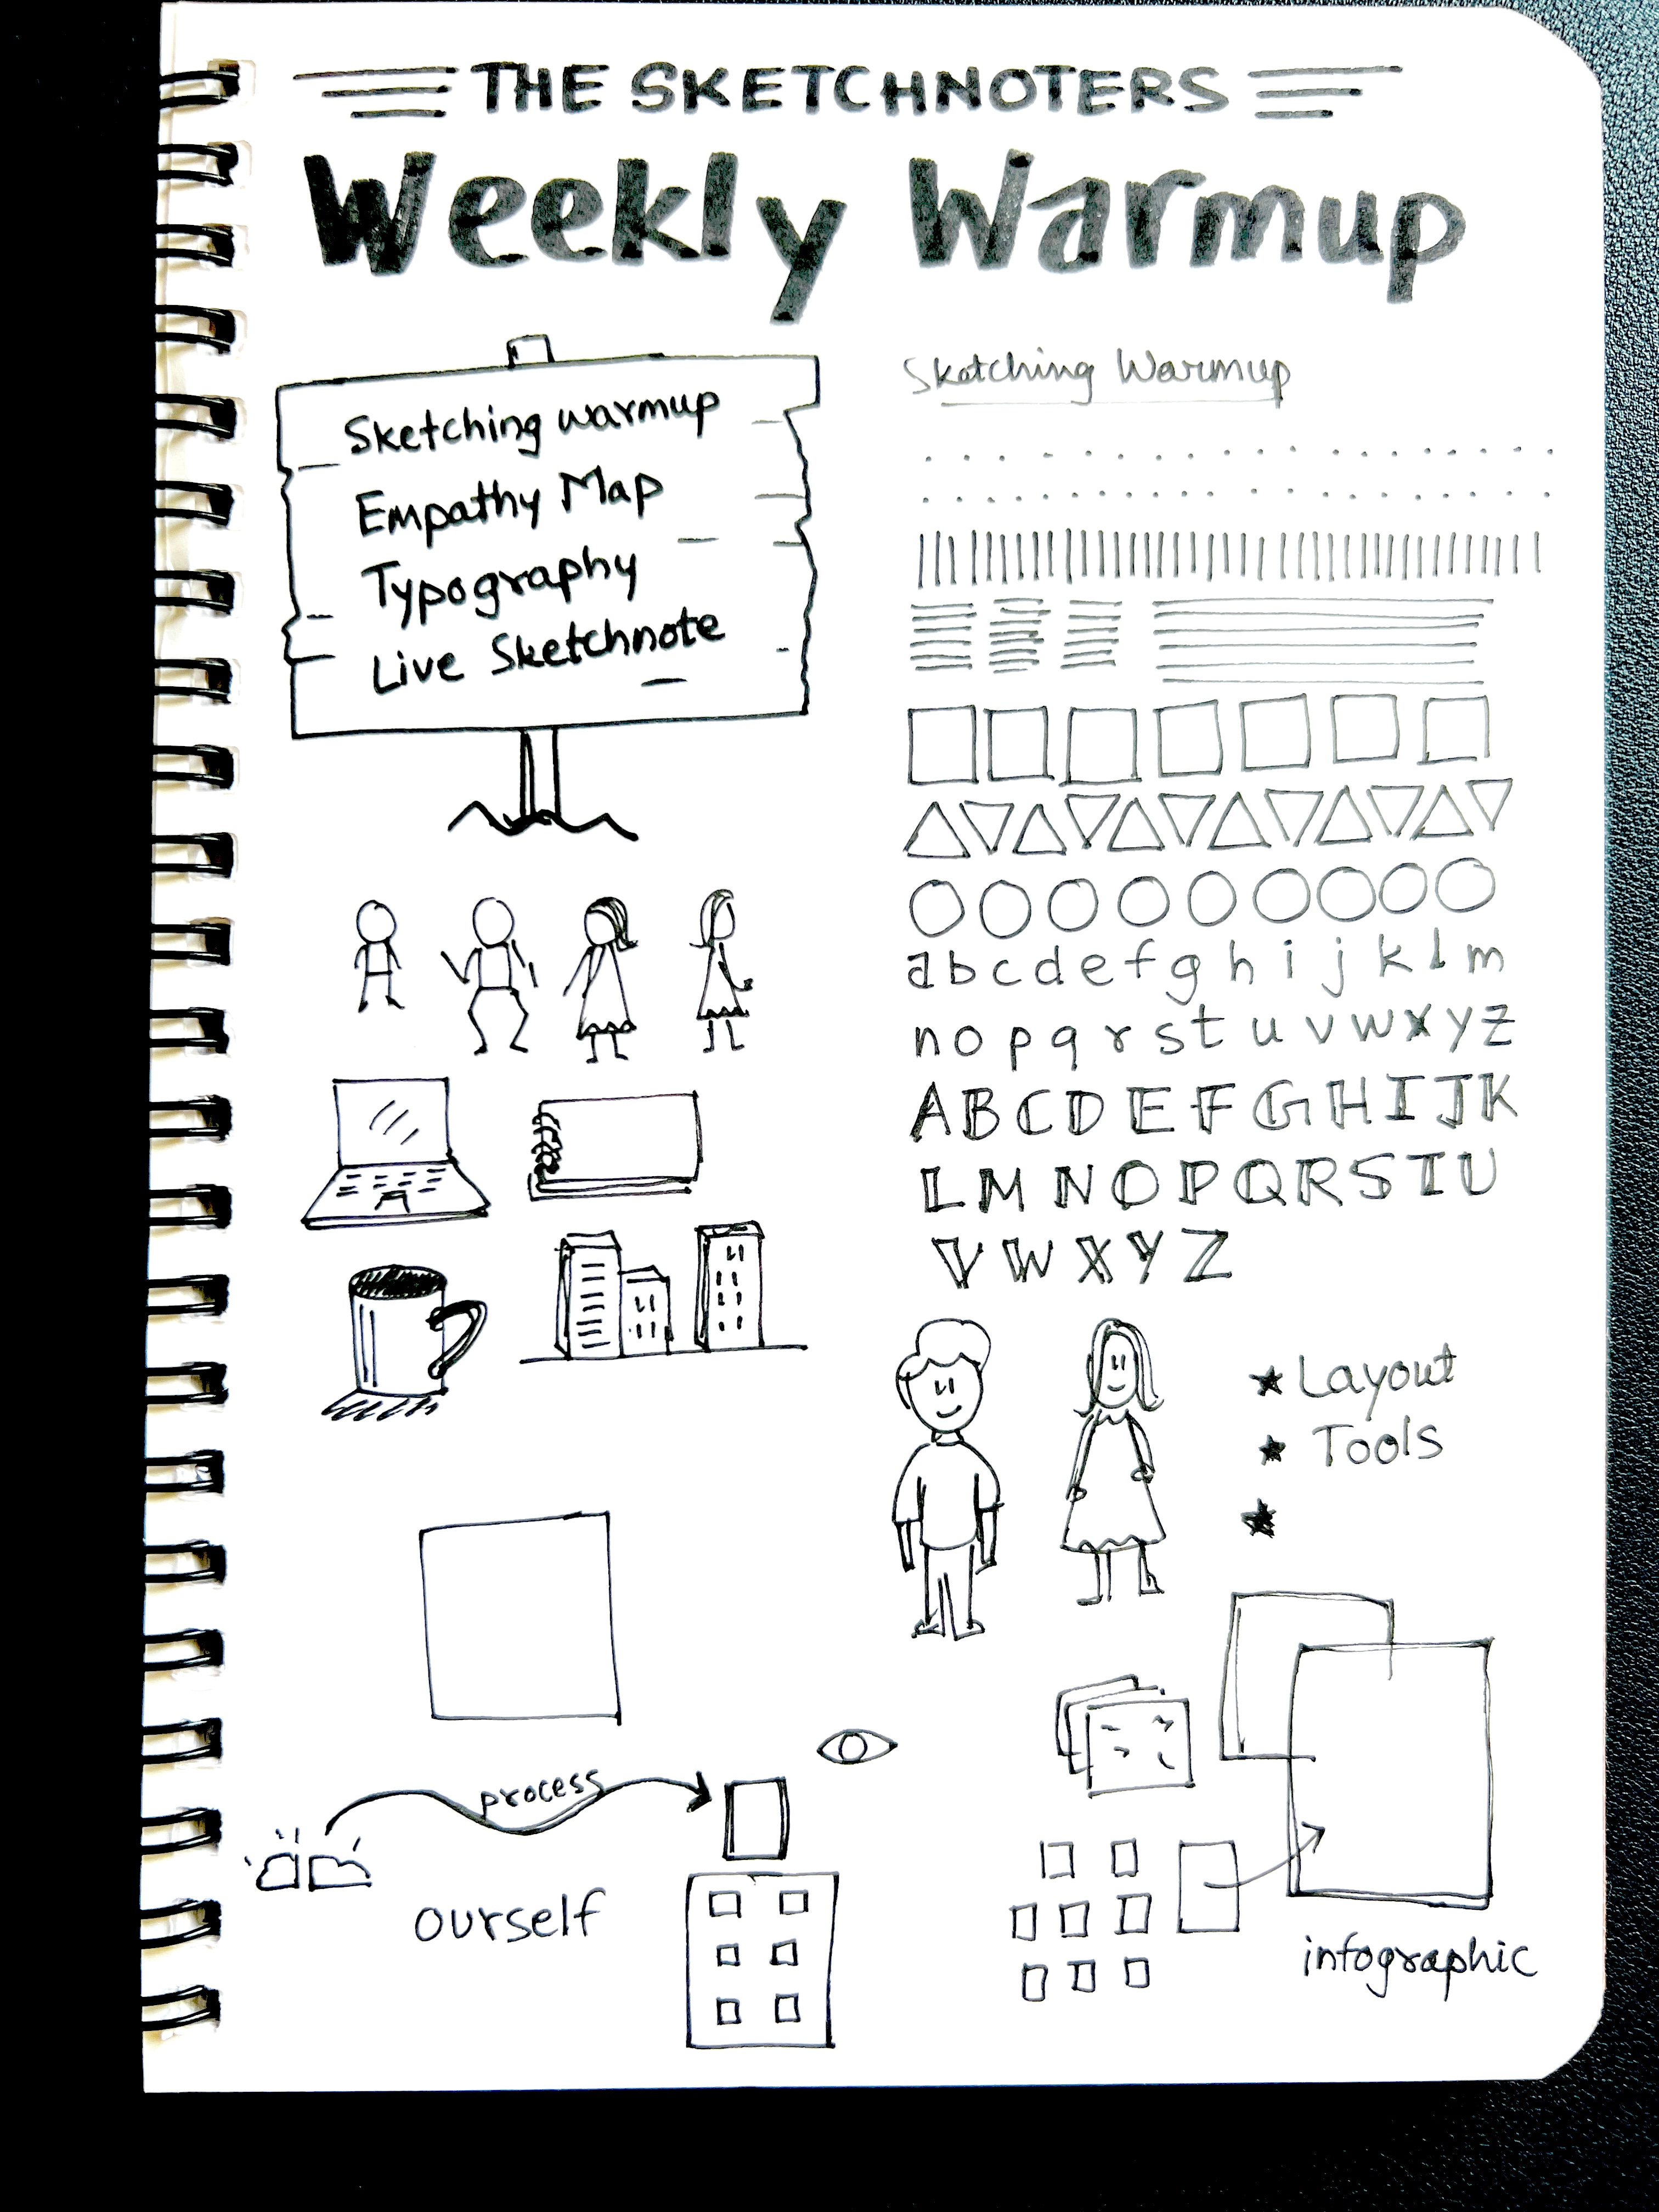 THE SKETCHNOTERS
Weekly Warmup
Sketching warmup
Empathy Map
Typography
Live Sketchnote
Sketching Warmup
a b c d e f g h i j k l m
n o p q r s t u v w x y z
A B C D E F G H I J K
L M N O P Q R S T U
V W X Y Z
Layout
Tools
process
ourself
infographic